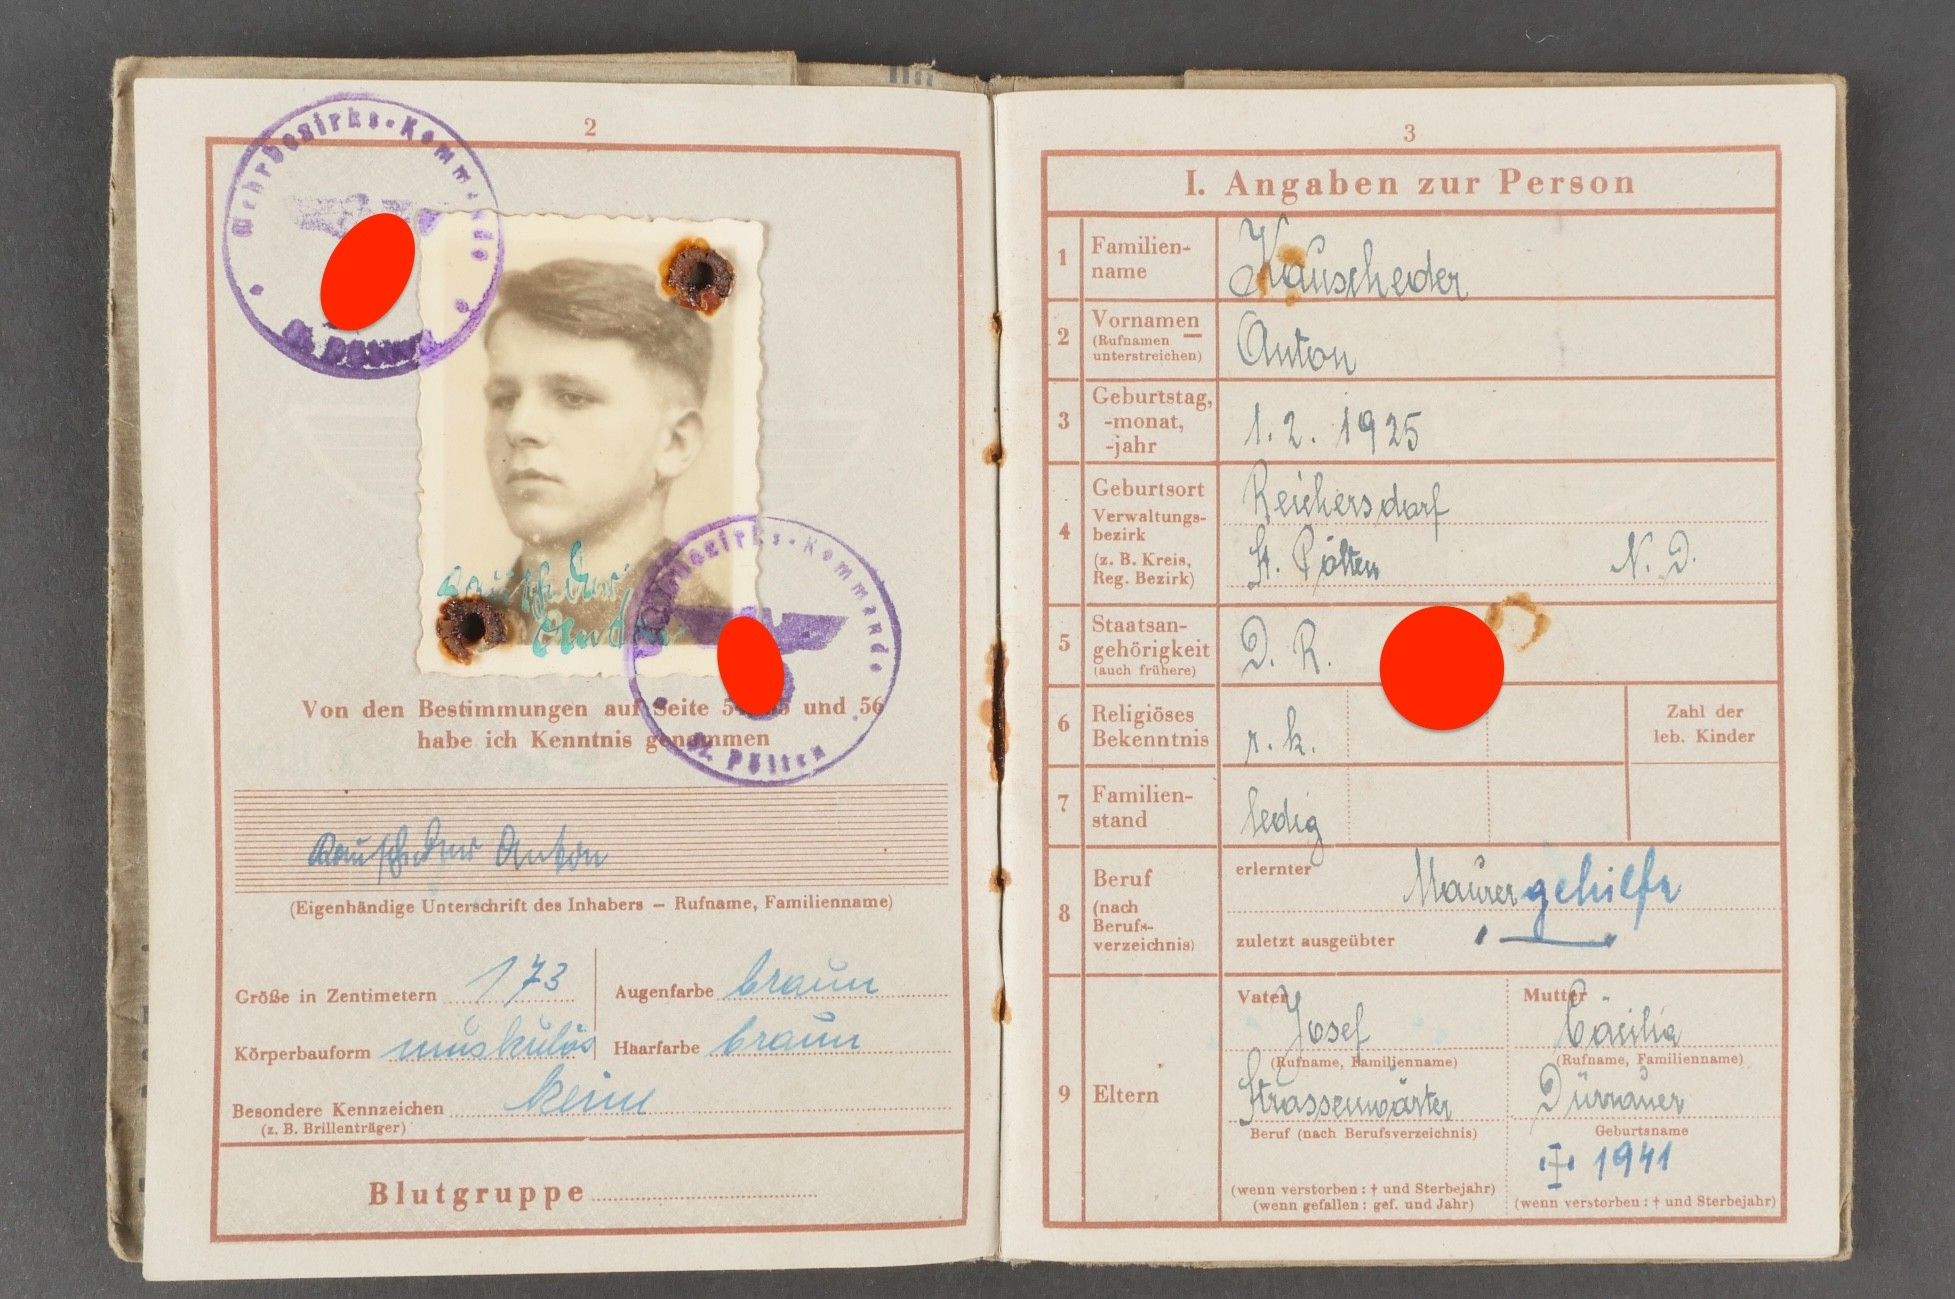 2
Wehrbezirks-Kommando
St. Pölten
Wehrbezirks-Kommando
St. Pölten
Von den Bestimmungen auf Seite 54, 55 und 56
habe ich Kenntnis genommen
Kauscheder Anton
(Eigenhändige Unterschrift des Inhabers — Rufname, Familienname)
Größe in Zentimetern 173 Augenfarbe braun
Körperbauform muskulös Haarfarbe braun
Besondere Kennzeichen keine
(z. B. Brillenträger)
Blutgruppe
3
I. Angaben zur Person
1 Familien-
name
Kauscheder
2 Vornamen
(Rufnamen
unterstreichen)
Anton
3 Geburtstag,
-monat,
-jahr
1. 2. 1925
4 Geburtsort
Verwaltungs-
bezirk
(z. B. Kreis,
Reg. Bezirk)
Reichersdorf
St. Pölten N. D.
5 Staatsan-
gehörigkeit
(auch frühere)
D. R.
6 Religiöses
Bekenntnis
r. k.
Zahl der
leb. Kinder
7 Familien-
stand
ledig
8 Beruf
(nach
Berufs-
verzeichnis)
erlernter Maurergehilfe
zuletzt ausgeübter
9 Eltern
Vater Josef
(Rufname, Familienname)
Strassenwärter
Beruf (nach Berufsverzeichnis)
(wenn verstorben: † und Sterbejahr)
(wenn gefallen: gef. und Jahr)
Mutter Cäcilia
(Rufname, Familienname)
Dürnauer
Geburtsname
† 1941
(wenn verstorben: † und Sterbejahr)